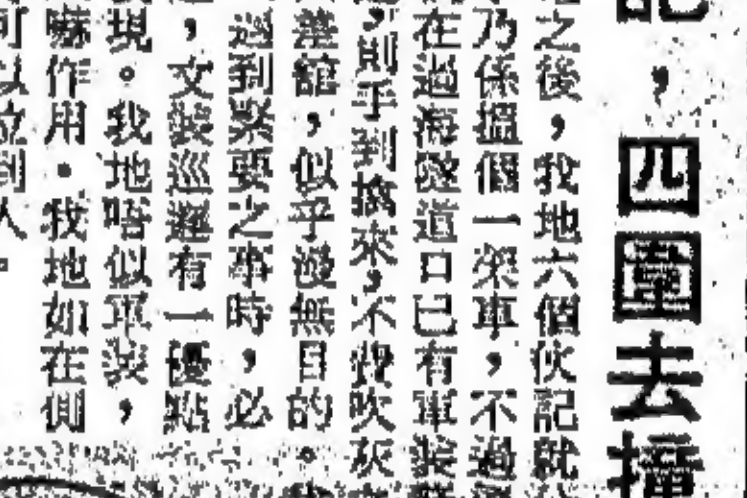 記，四圍去撞
之後，我地六個伙記就
乃係搵個一架車，不過
在過海隧道口已有軍裝
，則手到擒來，不費吹灰
差館，似乎漫無目的。
遇到緊要之事時，必
，文裝巡邏有一優點
現。我地唔似軍裝，
嚇作用。我地如在側
可以拉到人。